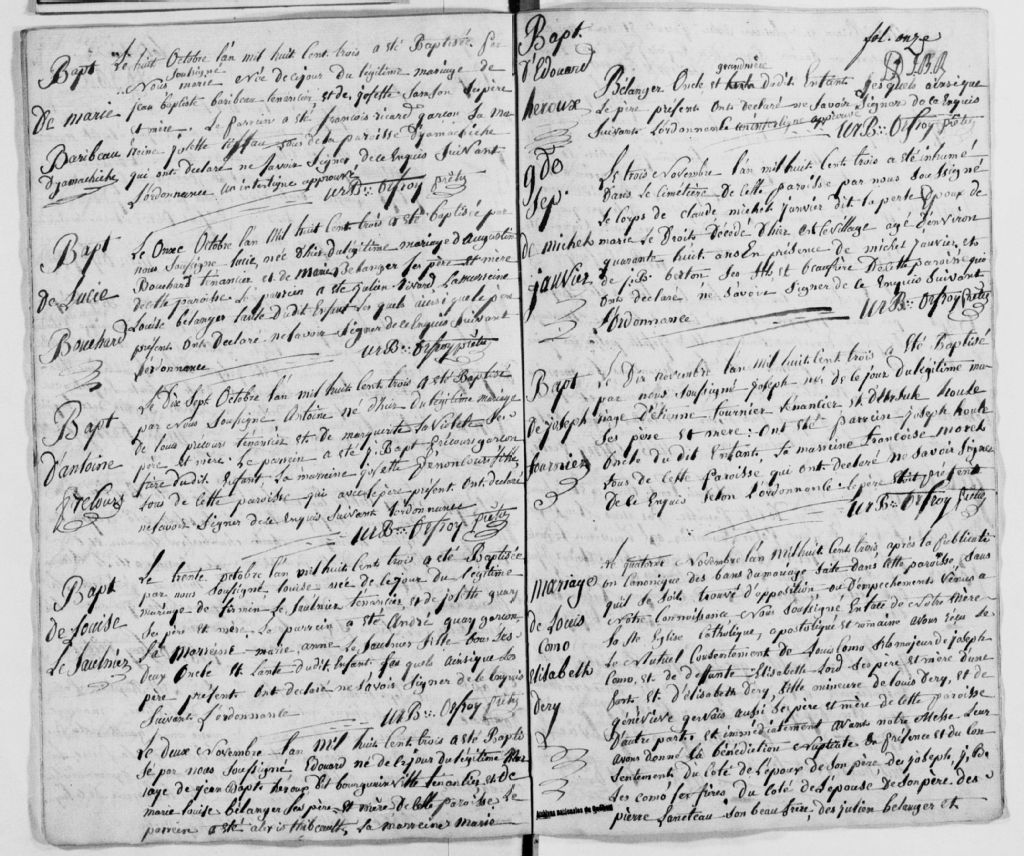 Bapt
De marie
Baribeau
Dyamachiche
Le huit Octobre l'an mil huit Cent trois a été Baptisée par
Nous Soussigné marie Née de ce jour du légitime mariage de
jean baptiste baribeau tenancier et de josette Sanson Ses père
et mère. Le parrein a été françois ricard garcon La ma
reine josette tous de la paroisse Dyamachiche
qui ont déclaré ne savoir signer de ce Enquis Suivant
L'ordonnance un interligne approuvé
Ur B:: Orfroy prêtre
Bapt
de Lucie
Bouchard
Le Onze Octobre l'an Mil huit Cent trois a été baptisée par
nous Soussigné lucie, née D'hier du légitime mariage D'Augustin
Bouchard tenancier et de Marie Belanger Ses père et mère
de cette paroisse. Le parrein a été julien Sivard La mareine
Louise belanger tante Dudit Enfant Les quels ainsi que le père
présent Ont Declaré ne savoir Signer de ce Enquis Suivant
L'ordonnance
Ur B:: Orfroy prêtre
Bapt
D'antoine
Précours
Le dix Sept Octobre l'an Mil huit Cent trois a été Baptisé
par Nous Soussigné Antoine né d'hier du légitime mariage
de Louis precours tenancier et de marguerite La violette Ses
père et mère. Le parrein a été j. Bapt Précours garcon
frère dudit Enfant. La marreine josette
tous de Cette paroisse qui avec le père présent Ont declaré
ne savoir Signer de ce Enquis Suivant Lordonnance
Ur B:: Orfroy prêtre
Bapt
de Louise
Le Saulnier
Le trente octobre l'an mil huit Cent trois a été Baptisée
par nous Soussigné Louise née de ce jour du légitime
mariage de firmin le Saulnier tenancier et de joseth quay
Ses père et mère. Le parrein a été André quay garcon,
La Marreine marie anne Le Saulnier fille tous Les
deux Oncle et tante dudit Enfant Les quels ainsi que Le
père présent Ont declaré ne Savoir Signer de ce Enquis
Suivant L'ordonnance
Ur B:: Orfroy prêtre
Le deux Novembre l'an Mil huit Cent trois a été Bapti
Sé par nous Soussigné Edouard né de ce jour du légitime Mar
iage de jean Bapte heroux Dit bourguinville tenancier et de
marie louise belanger Ses père et Mère de Cette paroisse Le
parrein a été alexis thibeault, La marreine marie
Bapt.
d'Edouard
heroux
fol. onze
Bélanger Oncle et grandmère dudit Enfant Lesquels ainsi que
Le père présent Ont declaré ne Savoir Signer de ce Enquis
Suivant L'ordonnance un interligne approuvé
Ur B:: Orfroy prêtre
9do
Sep
de michel
janvier
Le trois Novembre l'an Mil huit Cent trois a été inhumé
Dans le Cimetière de Cette paroisse par nous Soussigné
Le Corps de claude michel janvier dit la perle Epoux de
marie Le Droits Décédé d'hier en ce village agé D'environ
quarante huit ans En présence de michel janvier et
de j. B. berton Ses fils et beaufrère De cette paroisse qui
Ont declaré ne Savoir Signer de ce Enquis Suivant
L'ordonnance
Ur B:: Orfroy prêtre
Bapt
de joseph
fournier
Le Dix novembre l'an mil huit Cent trois a été Baptisé
par nous Soussigné joseph né de ce jour du légitime ma-
riage D'étienne fournier tenancier et D'Ursule houle
Ses père et mère: Ont été parrein joseph houle
Oncle du dit Enfant, La marreine françoise Morel
tous de Cette paroisse qui ont declaré ne Savoir Signer
De ce Enquis Selon L'ordonnance le père était présent
Ur B:: Orfroy prêtre
mariage
de Louis
Como
elisabeth
Dery
Le quatorze Novembre l'an Mil huit Cent trois, après la publicati
on Canonique des bans du mariage faite dans Cette paroisse, Sans
quil Se Soit trouvé d'opposition ou D'empechements Venus a
Notre Connoissance Nous Soussigné En face de Notre Mère
la Ste Eglise Catholique, apostolique et romaine avons reçu Le
Mutuel Consentement de Louis Como fils majeur de joseph
Como, et de deffunte Elisabeth Lord Ses père et mère d'une
part. Et D'elisabeth Dery fille mineure de Louis Dery, et de
Génévieve gervais aussi Ses père et mère de Cette paroisse
D'autre part; et immédiatement avant notre Messe Leur
avons donné la bénédiction Nuptiale En présence et du Con
Sentement du Coté de L'epoux de Son père joseph, j. B. de
Ses Como Ses frères du Coté de L'épouse de Son père, des
pierre Laneteau Son beau frère, des julien belanger et
Archives nationales du Québec